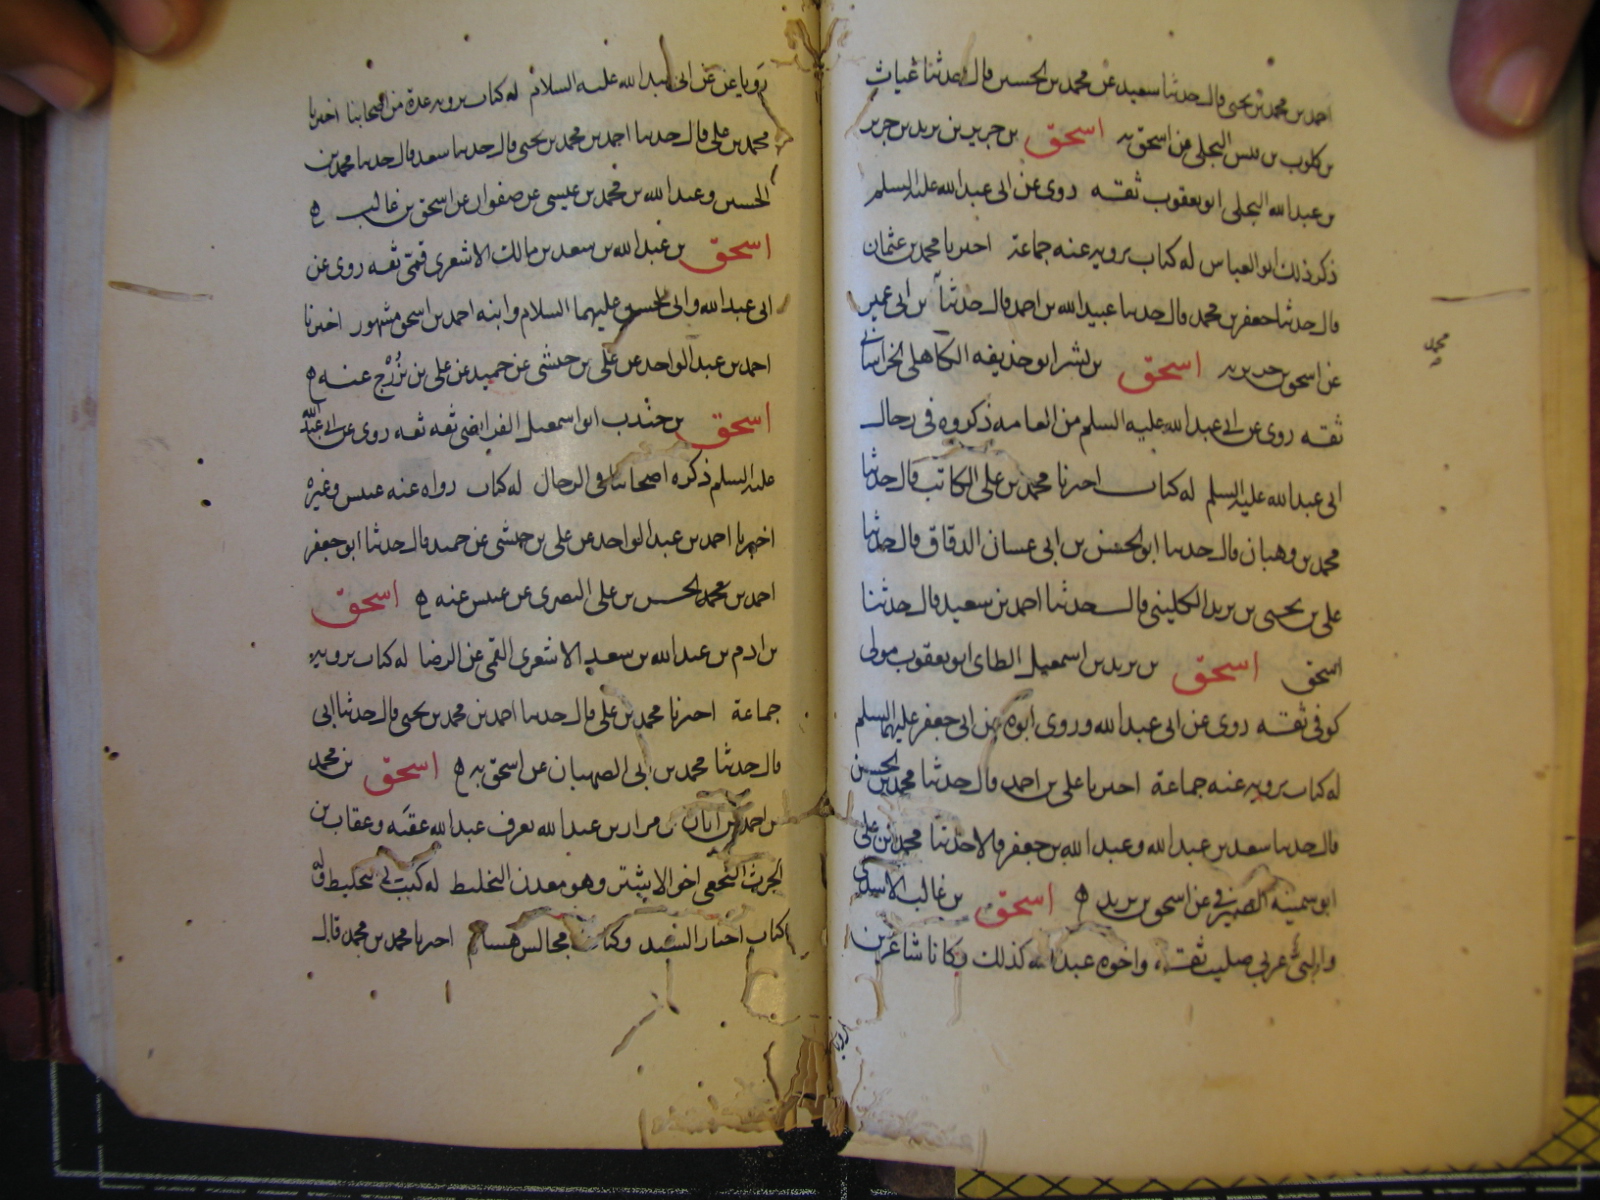 احمد بن محمد بن يحيى قال حدثنا سعيد عن محمد بن الحسين قال حدثنا غياث
بن كلوب بن قيس البجلى عن اسحق به اسحق بن جرير بن يزيد بن جرير
بن عبد الله البجلى ابو يعقوب ثقه روى عن ابى عبد الله عليه السلم
ذكر ذلك ابو العباس له كتاب يرويه عنه جماعة اخبرنا محمد بن عثمان
قال حدثنا جعفر بن محمد قال حدثنا عبيد الله بن احمد قال حدثنا بن ابى عمير
عن اسحق بن جرير به اسحق بن بشر ابو حذيفه الكاهلى الخراسانى
محمد
ثقه روى عن ابى عبد الله عليه السلم من العامه ذكروه فى رجال
ابى عبد الله عليه السلم له كتاب اخبرنا محمد بن على الكاتب قال حدثنا
محمد بن وهبان قال حدثنا ابو الحسن بن ابى غسان الدقاق قال حدثنا
على بن يحيى بن يزيد الكلينى قال حدثنا احمد بن سعيد قال حدثنا
اسحق اسحق بن يزيد بن اسمعيل الطاى ابو يعقوب مولى
كوفى ثقه روى عن ابى عبد الله وروى ابوه عن ابى جعفر عليهما السلم
له كتاب يرويه عنه جماعة اخبرنا على بن احمد قال حدثنا محمد بن الحسن
قال حدثنا سعد بن عبد الله وعبد الله بن جعفر قالا حدثنا محمد بن على
ابو سمينه الصيرفى عن اسحق بن يزيد ه اسحق بن غالب الاسدى
والبى عربى صليب ثقه، واخوه عبد الله كذلك وكانا شاعرين
رويا
رويا عن ابى عبد الله عليه السلام له كتاب يرويه عدة من اصحابنا اخبرنا
محمد بن على قال حدثنا احمد بن محمد بن يحيى قال حدثنا سعد قال حدثنا محمد بن
الحسين وعبد الله بن محمد بن عيسى عن صفوان عن اسحق بن غالب ه
اسحق بن عبد الله بن سعد بن مالك الاشعرى قمى ثقه روى عن
ابى عبد الله وابى الحسن عليهما السلام وابنه احمد بن اسحق مشهور اخبرنا
احمد بن عبد الواحد عن على بن حبشى عن حميد عن على بن بزرج عنه ه
اسحق بن جندب ابو اسمعيل الفرائضى ثقه ثقه روى عن ابى عبد الله
عليه السلم ذكره اصحابنا فى الرجال له كتاب رواه عنه عبيس وغيره
اخبرنا احمد بن عبد الواحد عن على بن حبشى عن حميد قال حدثنا ابو جعفر
احمد بن محمد الحسن بن على البصرى عن عبيس عنه ه اسحق
بن ادم بن عبد الله بن سعد الاشعرى القمى عن الرضا له كتاب يرويه
جماعة اخبرنا محمد بن على قال حدثنا احمد بن محمد بن يحيى قال حدثنا ابى
قال حدثنا محمد بن ابى الصهبان عن اسحق به ه اسحق بن محمد
بن احمد بن ابان بن مرار بن عبد الله يعرف عبد الله عقبه وعقاب بن
الحرث النخعى اخو الاشتر وهو معدن التخليط له كتب فى تخليط وله
كتاب اخبار السيد وكتاب مجالس هشام اخبرنا محمد بن محمد قال